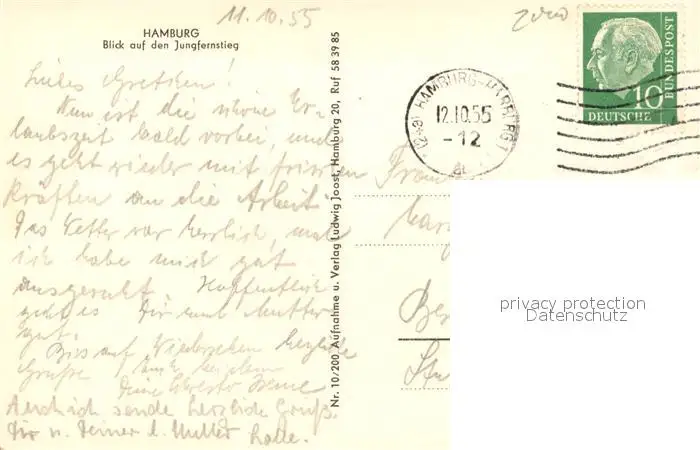 11.10.55
HAMBURG
Blick auf den Jungfernstieg
Liebes Gretchen!
Nun ist die schöne Ur-
laubszeit bald vorbei, und
es geht wieder mit frischen
Kräften an die Arbeit.
Das Wetter war herrlich, und
ich habe mich gut
ausgeruht. Hoffentlich
geht es Dir und Mutter
gut.
Bis auf Wiedersehen herzliche
Grüße
Deine
sende herzliche Grüße
Dir u. Deiner l. Mutter
Nr. 10/200 Aufnahme u. Verlag Ludwig Joost, Hamburg 20, Ruf 58 39 85
HAMBURG-HARBURG 1
12.10.55
-12
10
DEUTSCHE
BUNDESPOST
privacy protection
Datenschutz